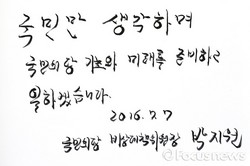 국민만 생각하며
국민의당 가치와 미래를 준비하고
일하겠습니다.
2016. 7. 7
국민의당 비상대책위원장 박지원
©Focusnews